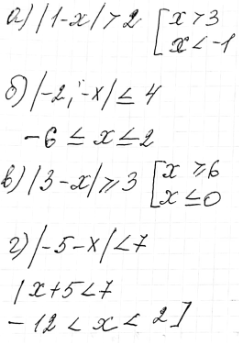 а) |1-x| > 2 [ x > 3
x < -1
б) |-2,-x| ≤ 4
-6 ≤ x ≤ 2
в) |3-x| ≥ 3 [ x ≥ 6
x ≤ 0
г) |-5-x| < 7
|x+5 < 7
-12 < x < 2]